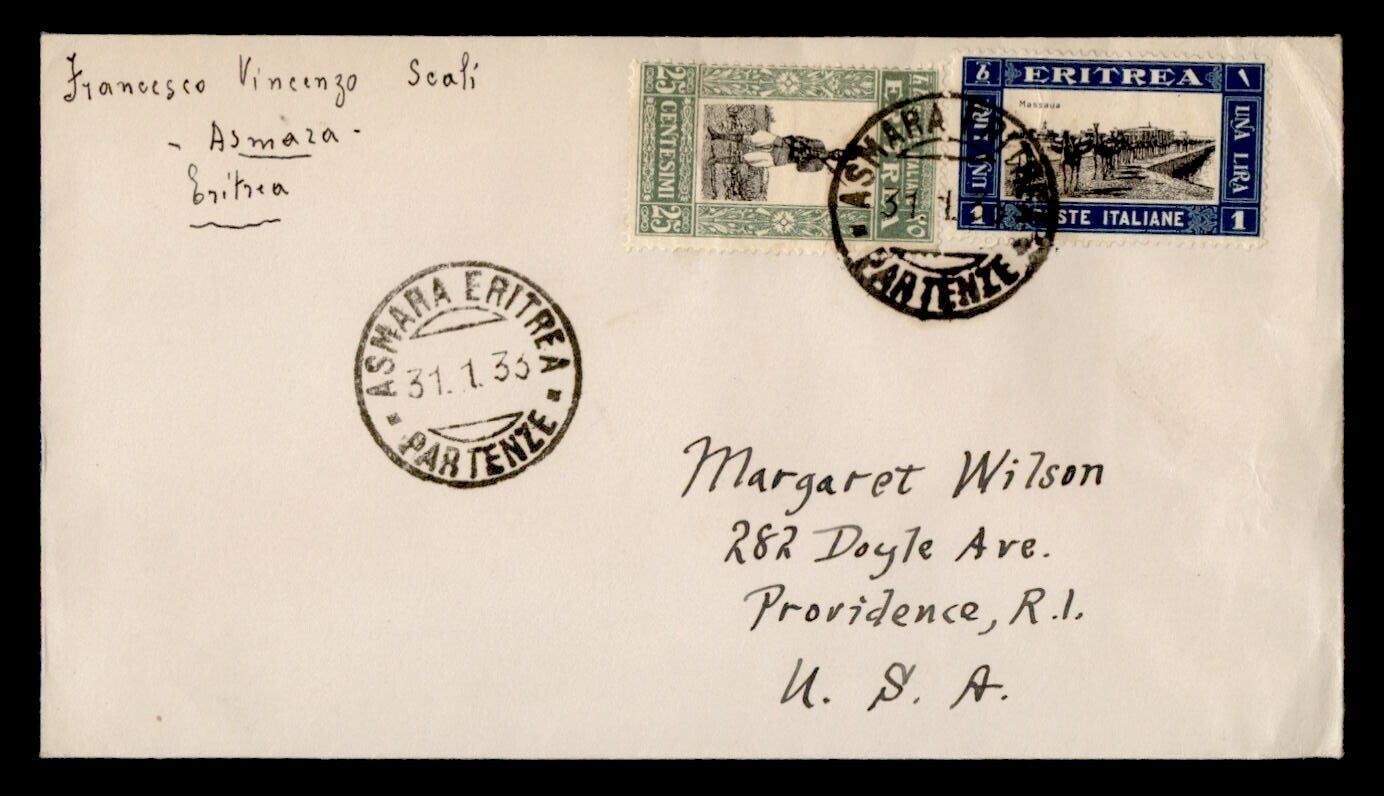 Francesco Vincenzo Scali
- Asmara -
Eritrea
25 CENTESIMI 25
ERITREA
Massaua
UNA LIRA
1
POSTE ITALIANE
1
ASMARA ERITREA
31.1.33
PARTENZE
ASMARA
31 1
PARTENZE
Margaret Wilson
282 Doyle Ave.
Providence, R.I.
U. S. A.